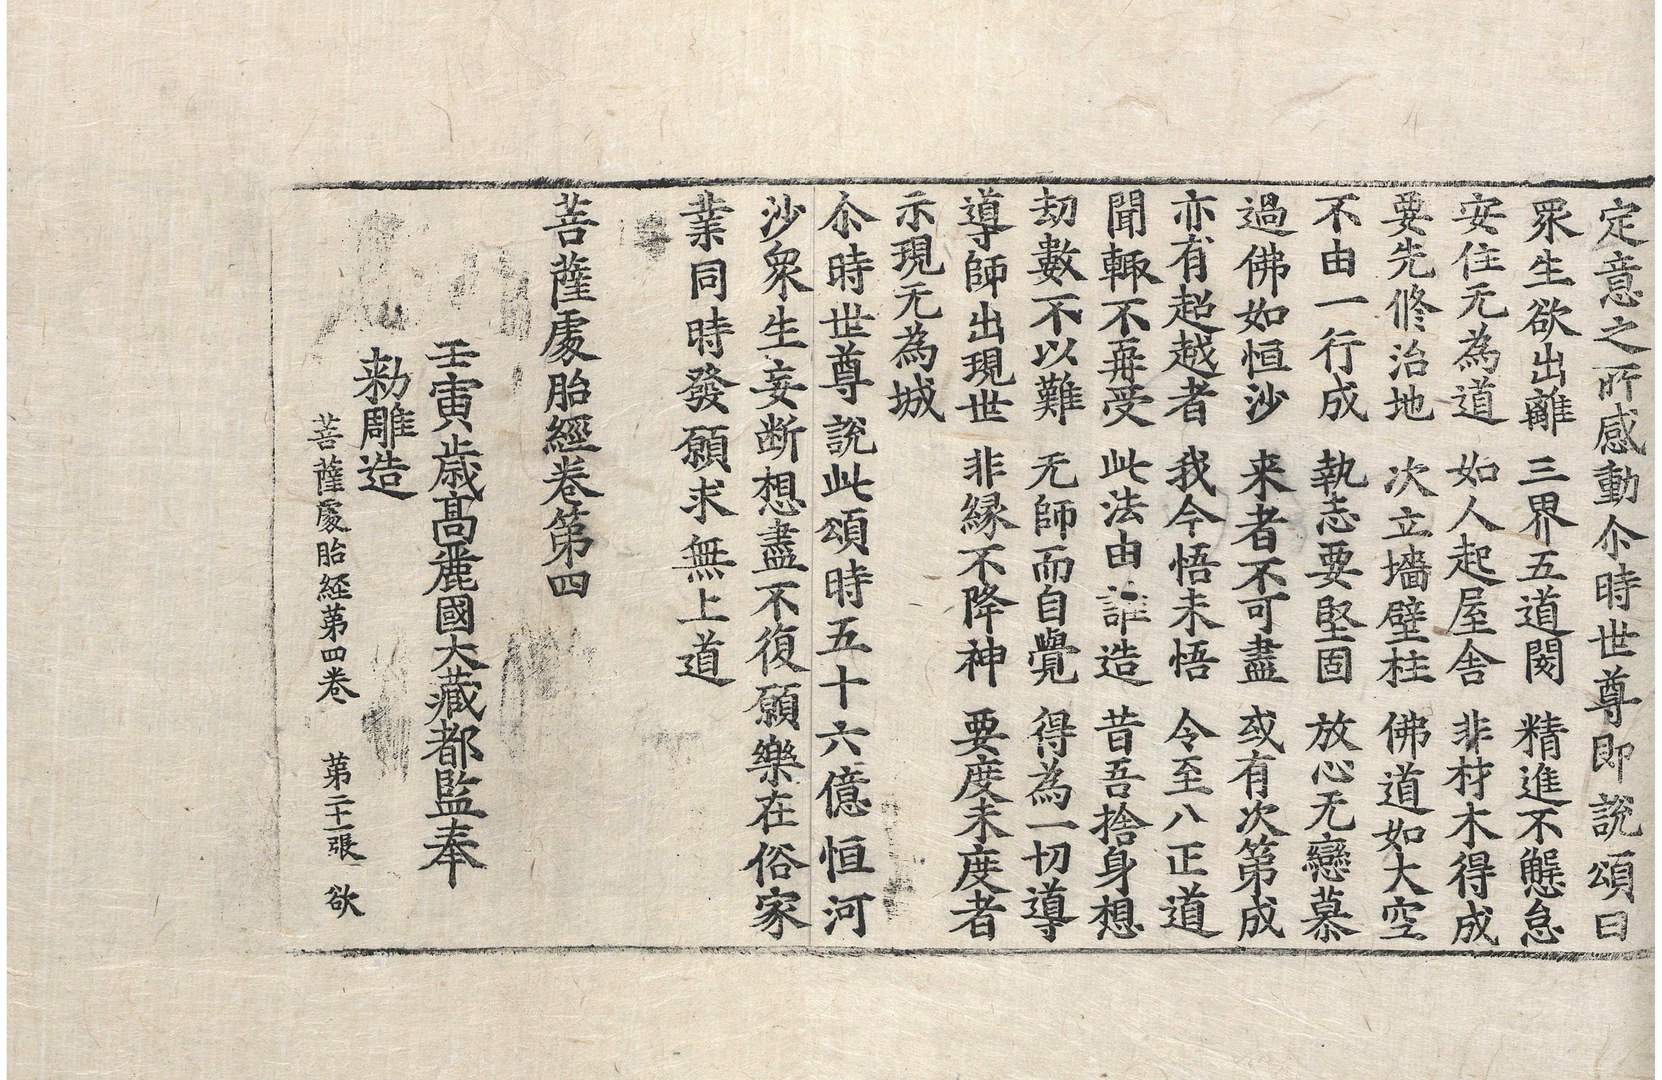 定意之所感動尒時世尊即說頌曰
眾生欲出離 三界五道閡 精進不懈怠
安住无為道 如人起屋舍 非材木得成
要先修治地 次立墻壁柱 佛道如大空
不由一行成 執志要堅固 放心无戀慕
過佛如恒沙 来者不可盡 或有次第成
亦有超越者 我今悟未悟 令至八正道
聞輙不再受 此法由誰造 昔吾捨身想
劫數不以難 无師而自覺 得為一切導
導師出現世 非縁不降神 要度未度者
示現无為城
尒時世尊說此頌時五十六億恒河
沙衆生妄断想盡不復願樂在俗家
業同時發願求無上道
菩薩處胎經卷第四
壬寅歳高麗國大藏都監奉
勑雕造
菩薩處胎経第四卷 第二十一張 欲